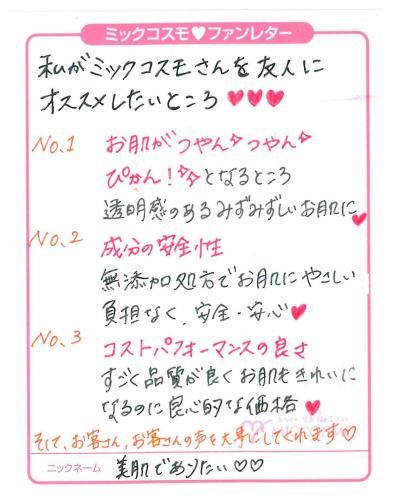 ミックコスモ♥ファンレター
私がミックコスモさんを友人に
オススメしたいところ♥♥♥
No.1 お肌がつやん✧つやん✧
ぴかん!✧✧となるところ
透明感のあるみずみずしいお肌に♥
No.2 成分の安全性
無添加処方でお肌にやさしい
負担なく、安全・安心♥
No.3 コストパフォーマンスの良さ
すごく品質が良くお肌もきれいに
なるのに良心的な価格♥
そして、お客さん、お客さんの声を大事にしてくれます♡
ニックネーム 美肌でありたい♡♡